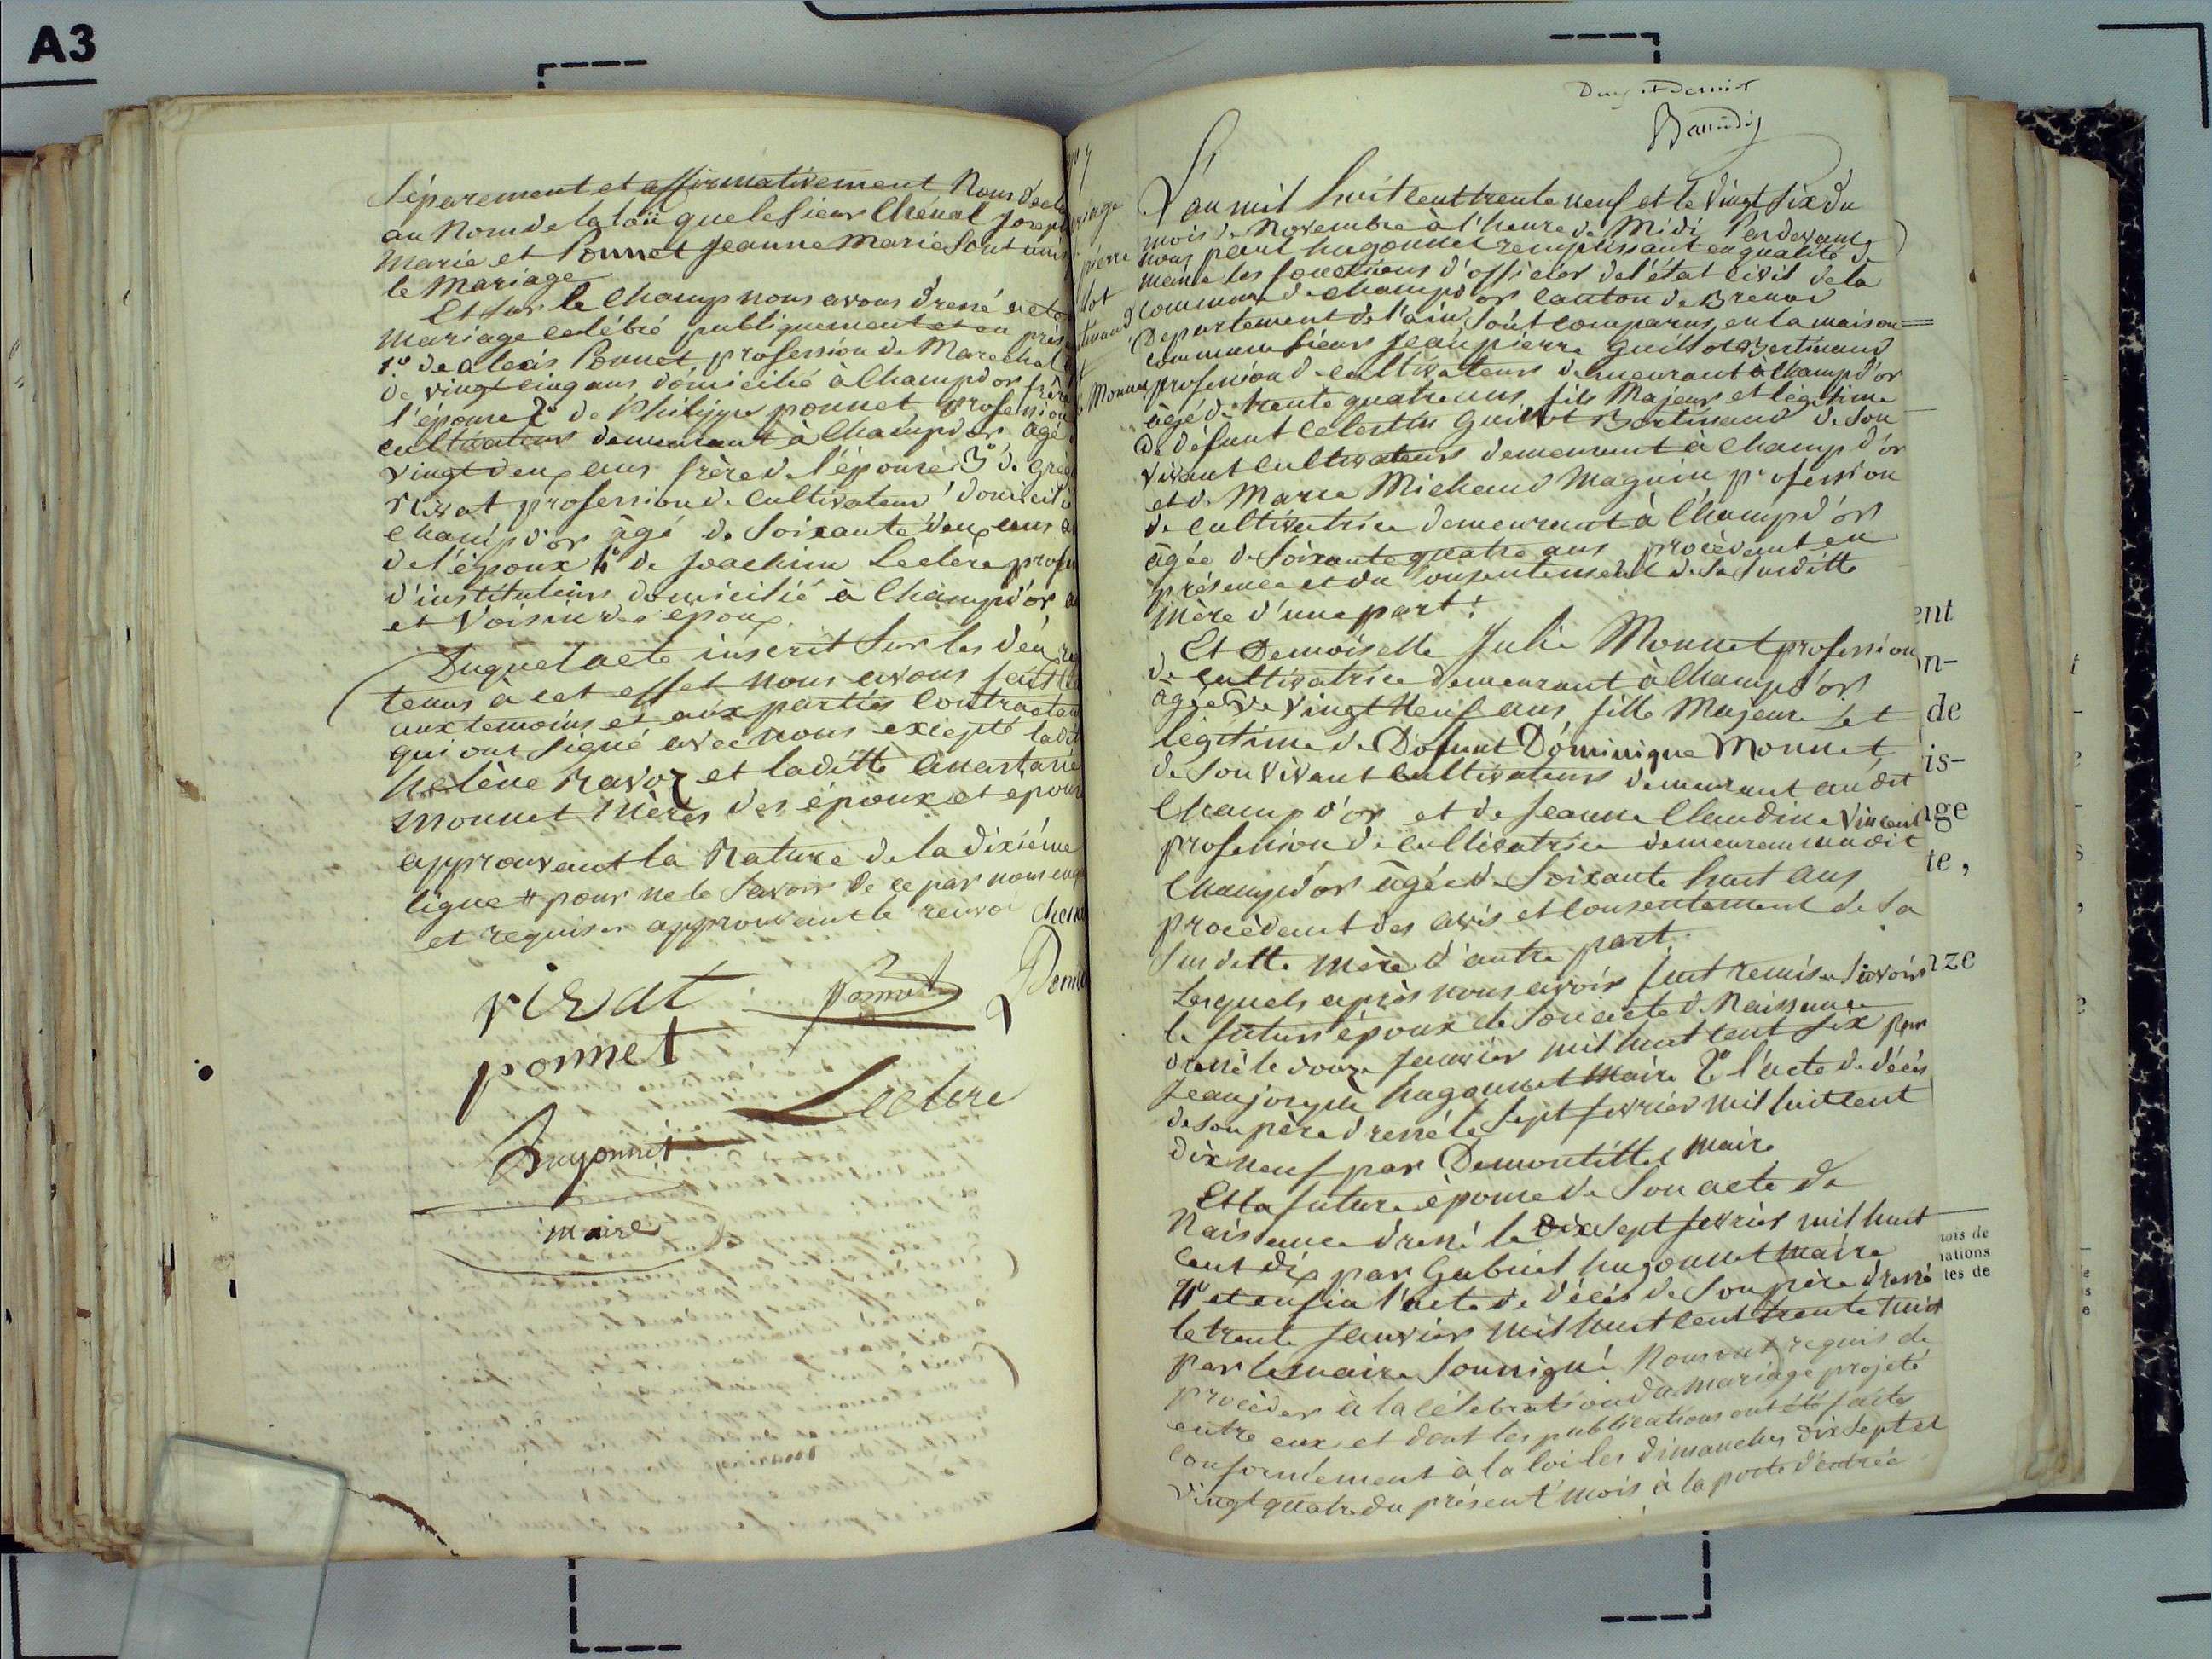 A3
Séparement et affirmativement Nous decla
au Nom de la loü que le sieur Chénal Joseph
Marie et Ponnet Jeanne Marie sont unis
le Mariage
Et sur le Champ nous avons dressé acte
Mariage celébré publiquement et en prés
1º de alexis Ponnet profession de Marechal
de vingt cinq ans domicilié à Champd'or frère
l'épouse 2º de Philippe ponnet profession
cultivateur demeurant à Champd'or agé
vingt deux ans frère de l'épouse 3º de Grég
rivat profession de Cultivateur domicilié
Champd'or âgé de Soixante deux ans
de l'époux 4º de Joachim Leclère profes
d'instituteur domicilié à Champd'or
et Voisin des époux
Duquel acte inscrit sur les deux re
tenus à cet effet nous avons fait
aux temoins et aux parties Contractan
qui ont Signé avec nous excepté ladit
helène ravoz et laditte anastasie
Monnet Mères des époux et épouse
approuvant la Rature de la dixième
ligne # pour ne le savoir de ce par nous enqu
et requises approuvant le renvoi
rivat
ponnet
ponnet
Leclere
hugonnet
maire
Mariage
pierre
Monnet
L'an mil huit cent trente neuf et le vingt six du
mois de Novembre à l'heure de Midi Pardevant
nous paul hugonnet remplissant en qualité de
maire les fonctions d'officier de l'état civil de la
commune de champd'or Canton de Brenod
Departement de l'ain, sont comparus en la maison
commune Sieur Jean pierre Guillot Bertinand
profession de cultivateur demeurant à Champd'or
âgé de trente quatre ans, fils Majeur et légitime
De défunt Celestin Guillot Bertinand de son
vivant Cultivateur demeurant à Champd'or
et de Marie Michaud Maguin profession
de cultivatrice demeurant à Champd'or
âgée de Soixante quatre ans procédant en
présence et du Consentement de Sa Susditte
Mère d'une part :
Et Demoiselle Julie Monnet profession
de Cultivatrice demeurant à Champd'or
âgée De Vingt Neuf ans, fille Majeure et
légitime de Défunt Dóminique Monnet,
de Son Vivant Cultivateur demeurant au dit
Champ d'or et de Jeanne Claudine Vincent
profession de cultivatrice demeurant au dit
Champd'or âgée de Soixante huit ans
procèdant des avis et Consentement de Sa
Susditte Mère d'autre part.
Lesquels après nous avoir fait remise Savoir
le futur époux de Son acte de Naissance
dressé le douze Janvier mil huit cent six par
Jean joseph hugonnet Maire 2º l'acte de décés
de son père dressé le Sept fevrier mil huit cent
dix neuf par Demontillet maire
Et la future épouse de Son acte de
Naissance dressé le Dix Sept fevrier mil huit
cent dix par Gabriel hugonnet Maire
4º et enfin l'acte de décés de Son père dressé
le trente Janvier Mil huit cent trente huit
par le maire Soussigné Nous ont requis de
procèder à la célebration du Mariage projeté
entre eux et dont les publications ont été faites
conformément à la loi les dimanches dix sept et
vingt quatre du présent mois à la porte d'entrée
ent
on-
de
is-
age
te,
nze
mois de
nations
tes de